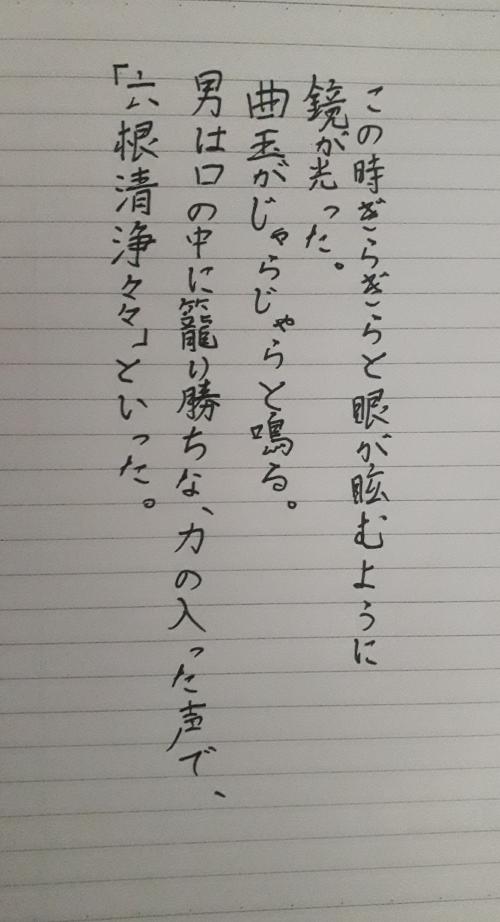 この時ぎらぎらと眼が眩むように
鏡が光った。
曲玉がじゃらじゃらと鳴る。
男は口の中に籠り勝ちな、力の入った声で、
「六根清浄々々」といった。